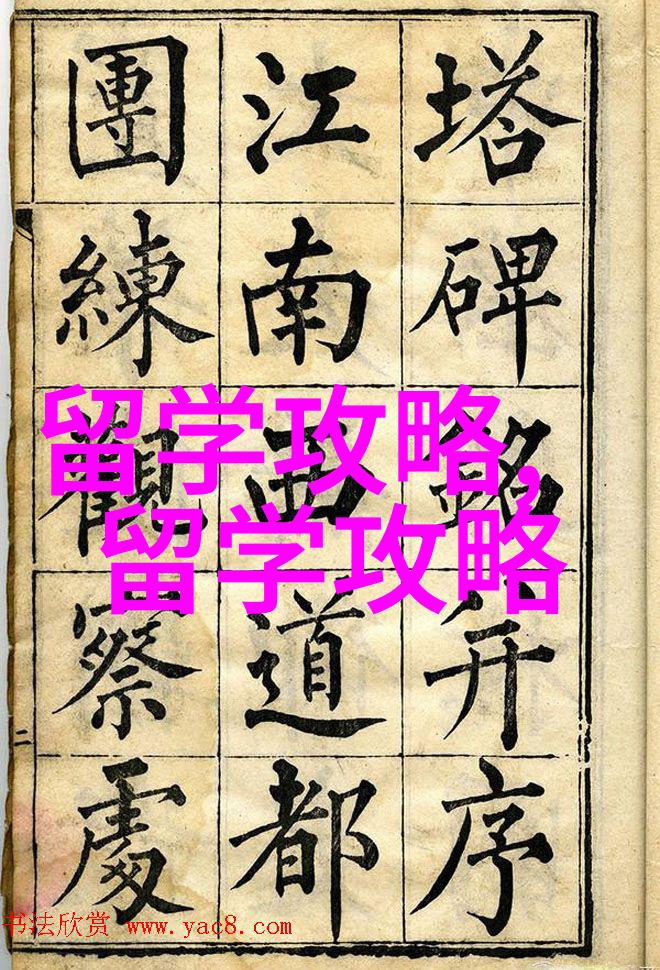 塔碑銘并序
江南西道都
團練觀察處
二
留学攻略,
留学攻略
书法欣赏 www.yac8.com